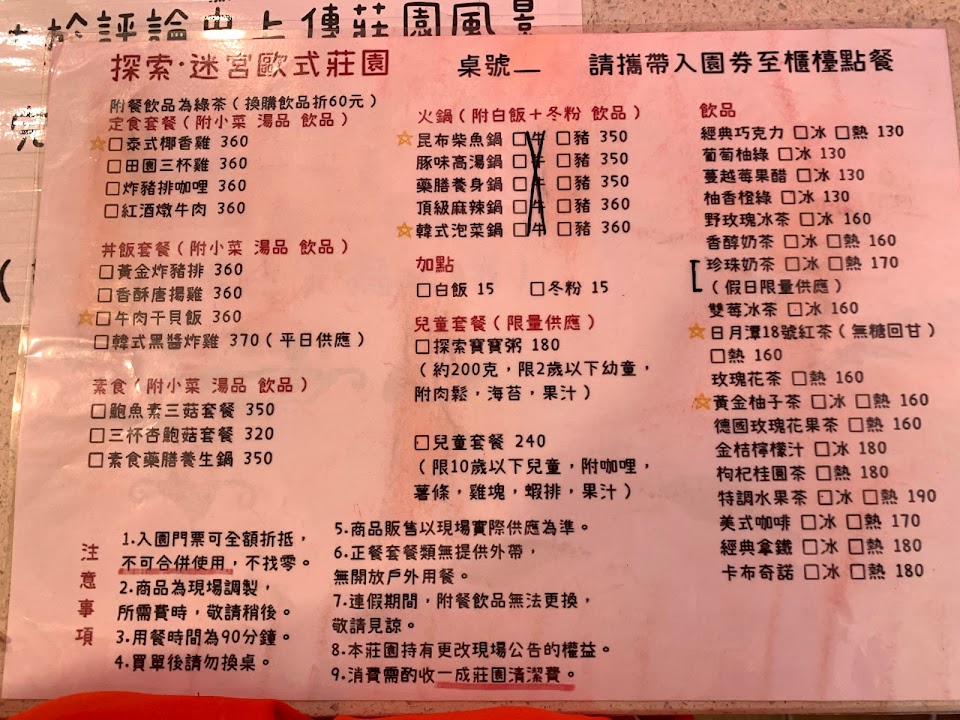 於評論中上傳莊園風景
探索·迷宮歐式莊園 桌號__ 請攜帶入園券至櫃檯點餐
附餐飲品為綠茶（換購飲品折60元）
定食套餐（附小菜 湯品 飲品）
☆□泰式椰香雞 360
□田園三杯雞 360
□炸豬排咖哩 360
□紅酒燉牛肉 360
丼飯套餐（附小菜 湯品 飲品）
□黃金炸豬排 360
□香酥唐揚雞 360
☆□牛肉干貝飯 360
□韓式黑醬炸雞 370（平日供應）
素食（附小菜 湯品 飲品）
□鮑魚素三菇套餐 350
□三杯杏鮑菇套餐 320
□素食藥膳養生鍋 350
火鍋（附白飯+冬粉 飲品）
☆昆布柴魚鍋 □牛 □豬 350
豚味高湯鍋 □牛 □豬 350
藥膳養身鍋 □牛 □豬 350
頂級麻辣鍋 □牛 □豬 360
☆韓式泡菜鍋 □牛 □豬 360
加點
□白飯 15 □冬粉 15
兒童套餐（限量供應）
□探索寶寶粥 180
（約200克，限2歲以下幼童，
附肉鬆，海苔，果汁）
□兒童套餐 240
（限10歲以下兒童，附咖哩，
薯條，雞塊，蝦排，果汁）
飲品
經典巧克力 □冰 □熱 130
葡萄柚綠 □冰 130
蔓越莓果醋 □冰 130
柚香橙綠 □冰 130
野玫瑰冰茶 □冰 160
香醇奶茶 □冰 □熱 160
珍珠奶茶 □冰 □熱 170
（假日限量供應）
雙莓冰茶 □冰 160
☆日月潭18號紅茶（無糖回甘）
□熱 160
玫瑰花茶 □熱 160
☆黃金柚子茶 □冰 □熱 160
德國玫瑰花果茶 □熱 160
金桔檸檬汁 □冰 180
枸杞桂圓茶 □熱 180
特調水果茶 □冰 □熱 190
美式咖啡 □冰 □熱 170
經典拿鐵 □冰 □熱 180
卡布奇諾 □冰 □熱 180
注意事項
1.入園門票可全額折抵，
不可合併使用，不找零。
2.商品為現場調製，
所需費時，敬請稍後。
3.用餐時間為90分鐘。
4.買單後請勿換桌。
5.商品販售以現場實際供應為準。
6.正餐套餐類無提供外帶，
無開放戶外用餐。
7.連假期間，附餐飲品無法更換，
敬請見諒。
8.本莊園持有更改現場公告的權益。
9.消費需酌收一成莊園清潔費。